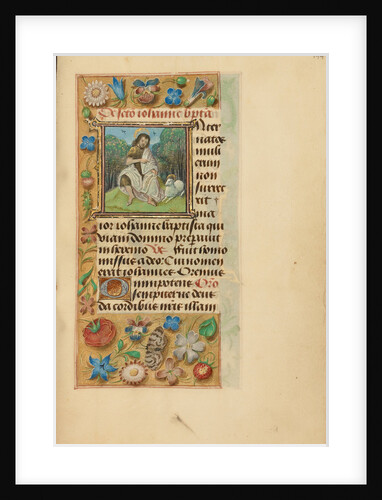 De sco iohanne bapta
Inter
natos
muli
erum
non
surrex
it
ma
ior iohanne baptista qui
viam domino preparavit
in heremo Vs Fuit homo
missus a deo R Cui nomen
erat iohannes Oremus
Omnipotens Oro
sempiterne deus
da cordibus nris illam